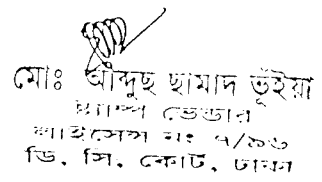 মোঃ আব্দুছ ছামাদ ভূঁইয়া
ষ্ট্যাম্প ভেন্ডার
লাইসেন্স নং ৭/৯৬
ডি, সি, কোর্ট, ঢাকা